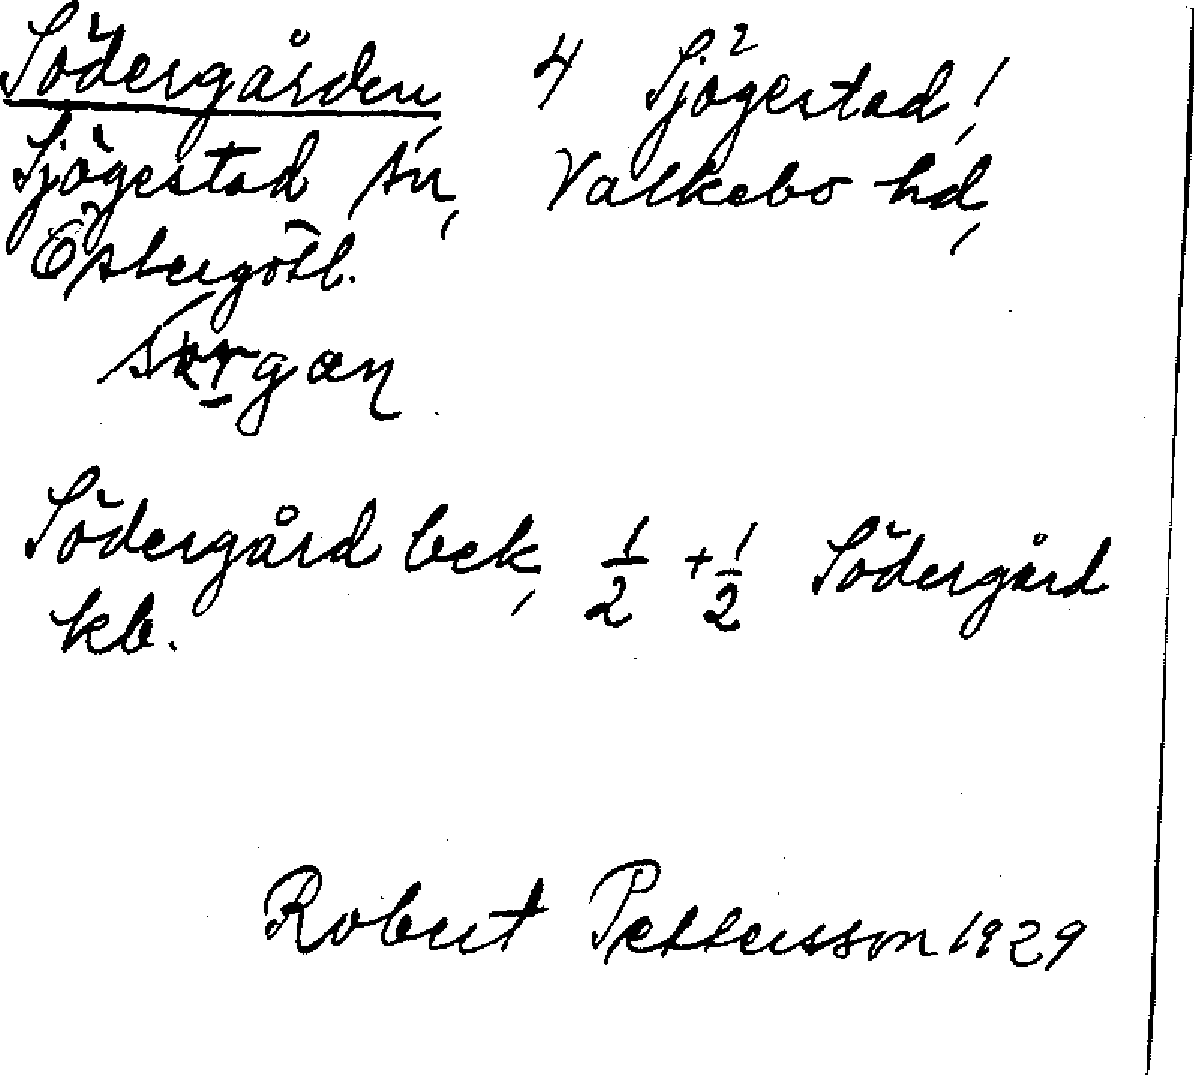 Södergården 4 Sjögestad,
Sjögestad sn, Valkebo hd,
Östergötl.
Södergård bek, 1/2 + 1/2 Södergård
kb.
Robert Pettersson 1929